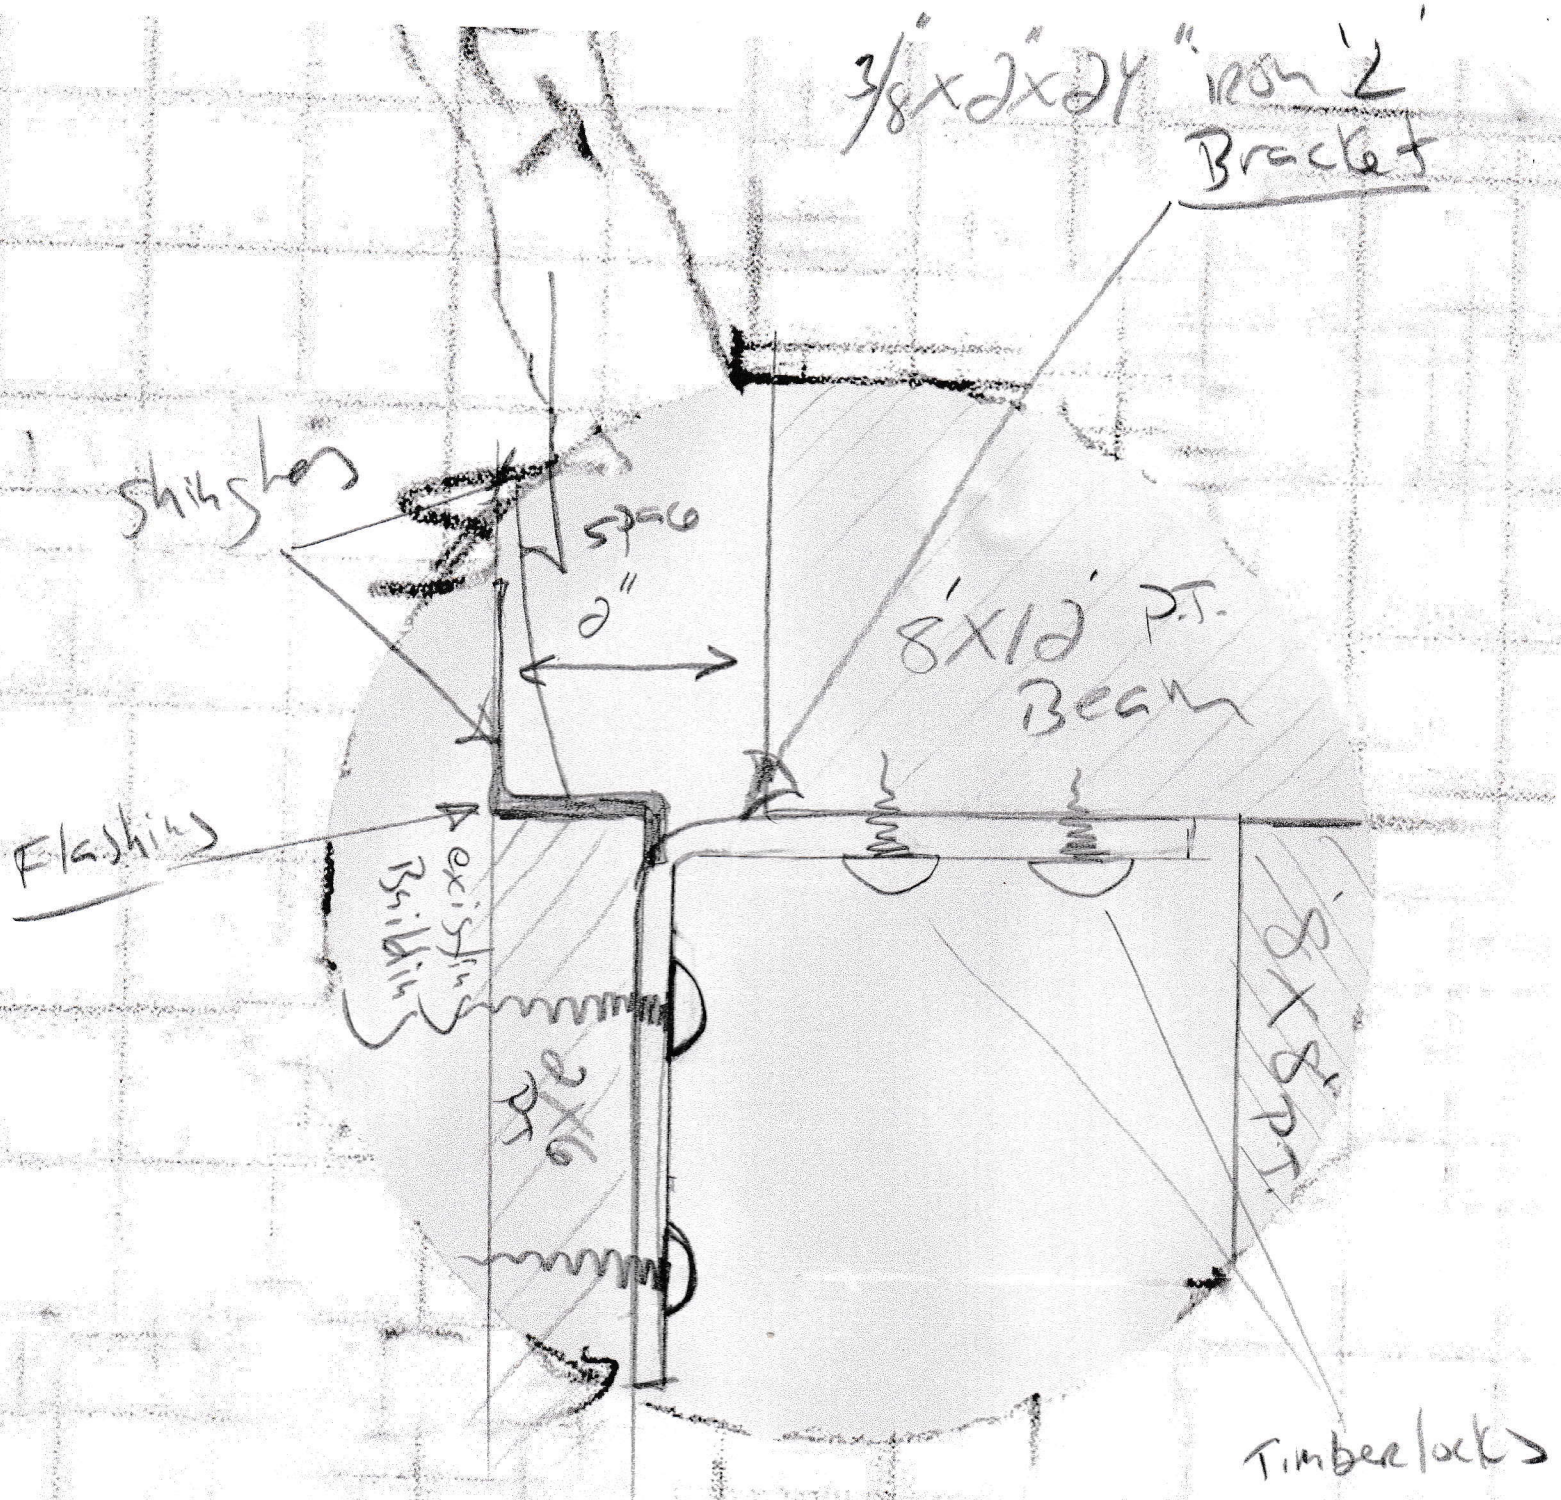 3/8"x2"x24" iron 'L'
Bracket
shingles
space
2"
8'x12' P.T.
Beam
Flashing
existing
Building
2x6
PT
8x8" P.T.
Timberlocks